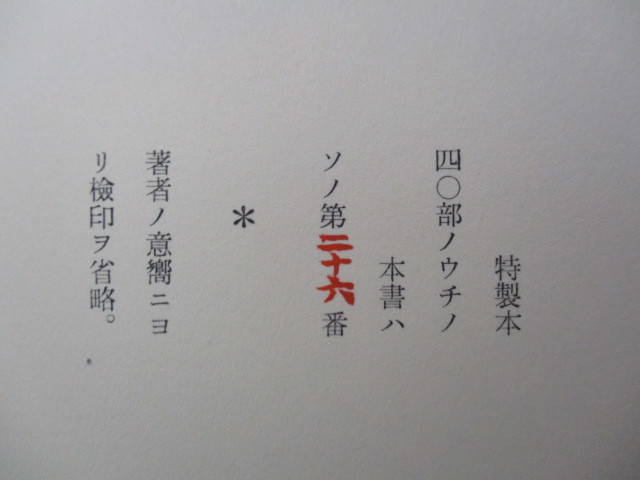 特製本
四〇部ノウチノ
本書ハ
ソノ第二十六番
＊
著者ノ意嚮ニヨ
リ檢印ヲ省略。